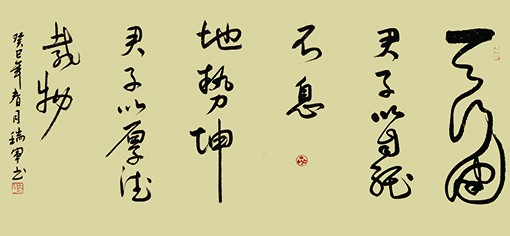 天行健
君子以自强
不息
地势坤
君子以厚德
载物
癸巳年春月瑞军书